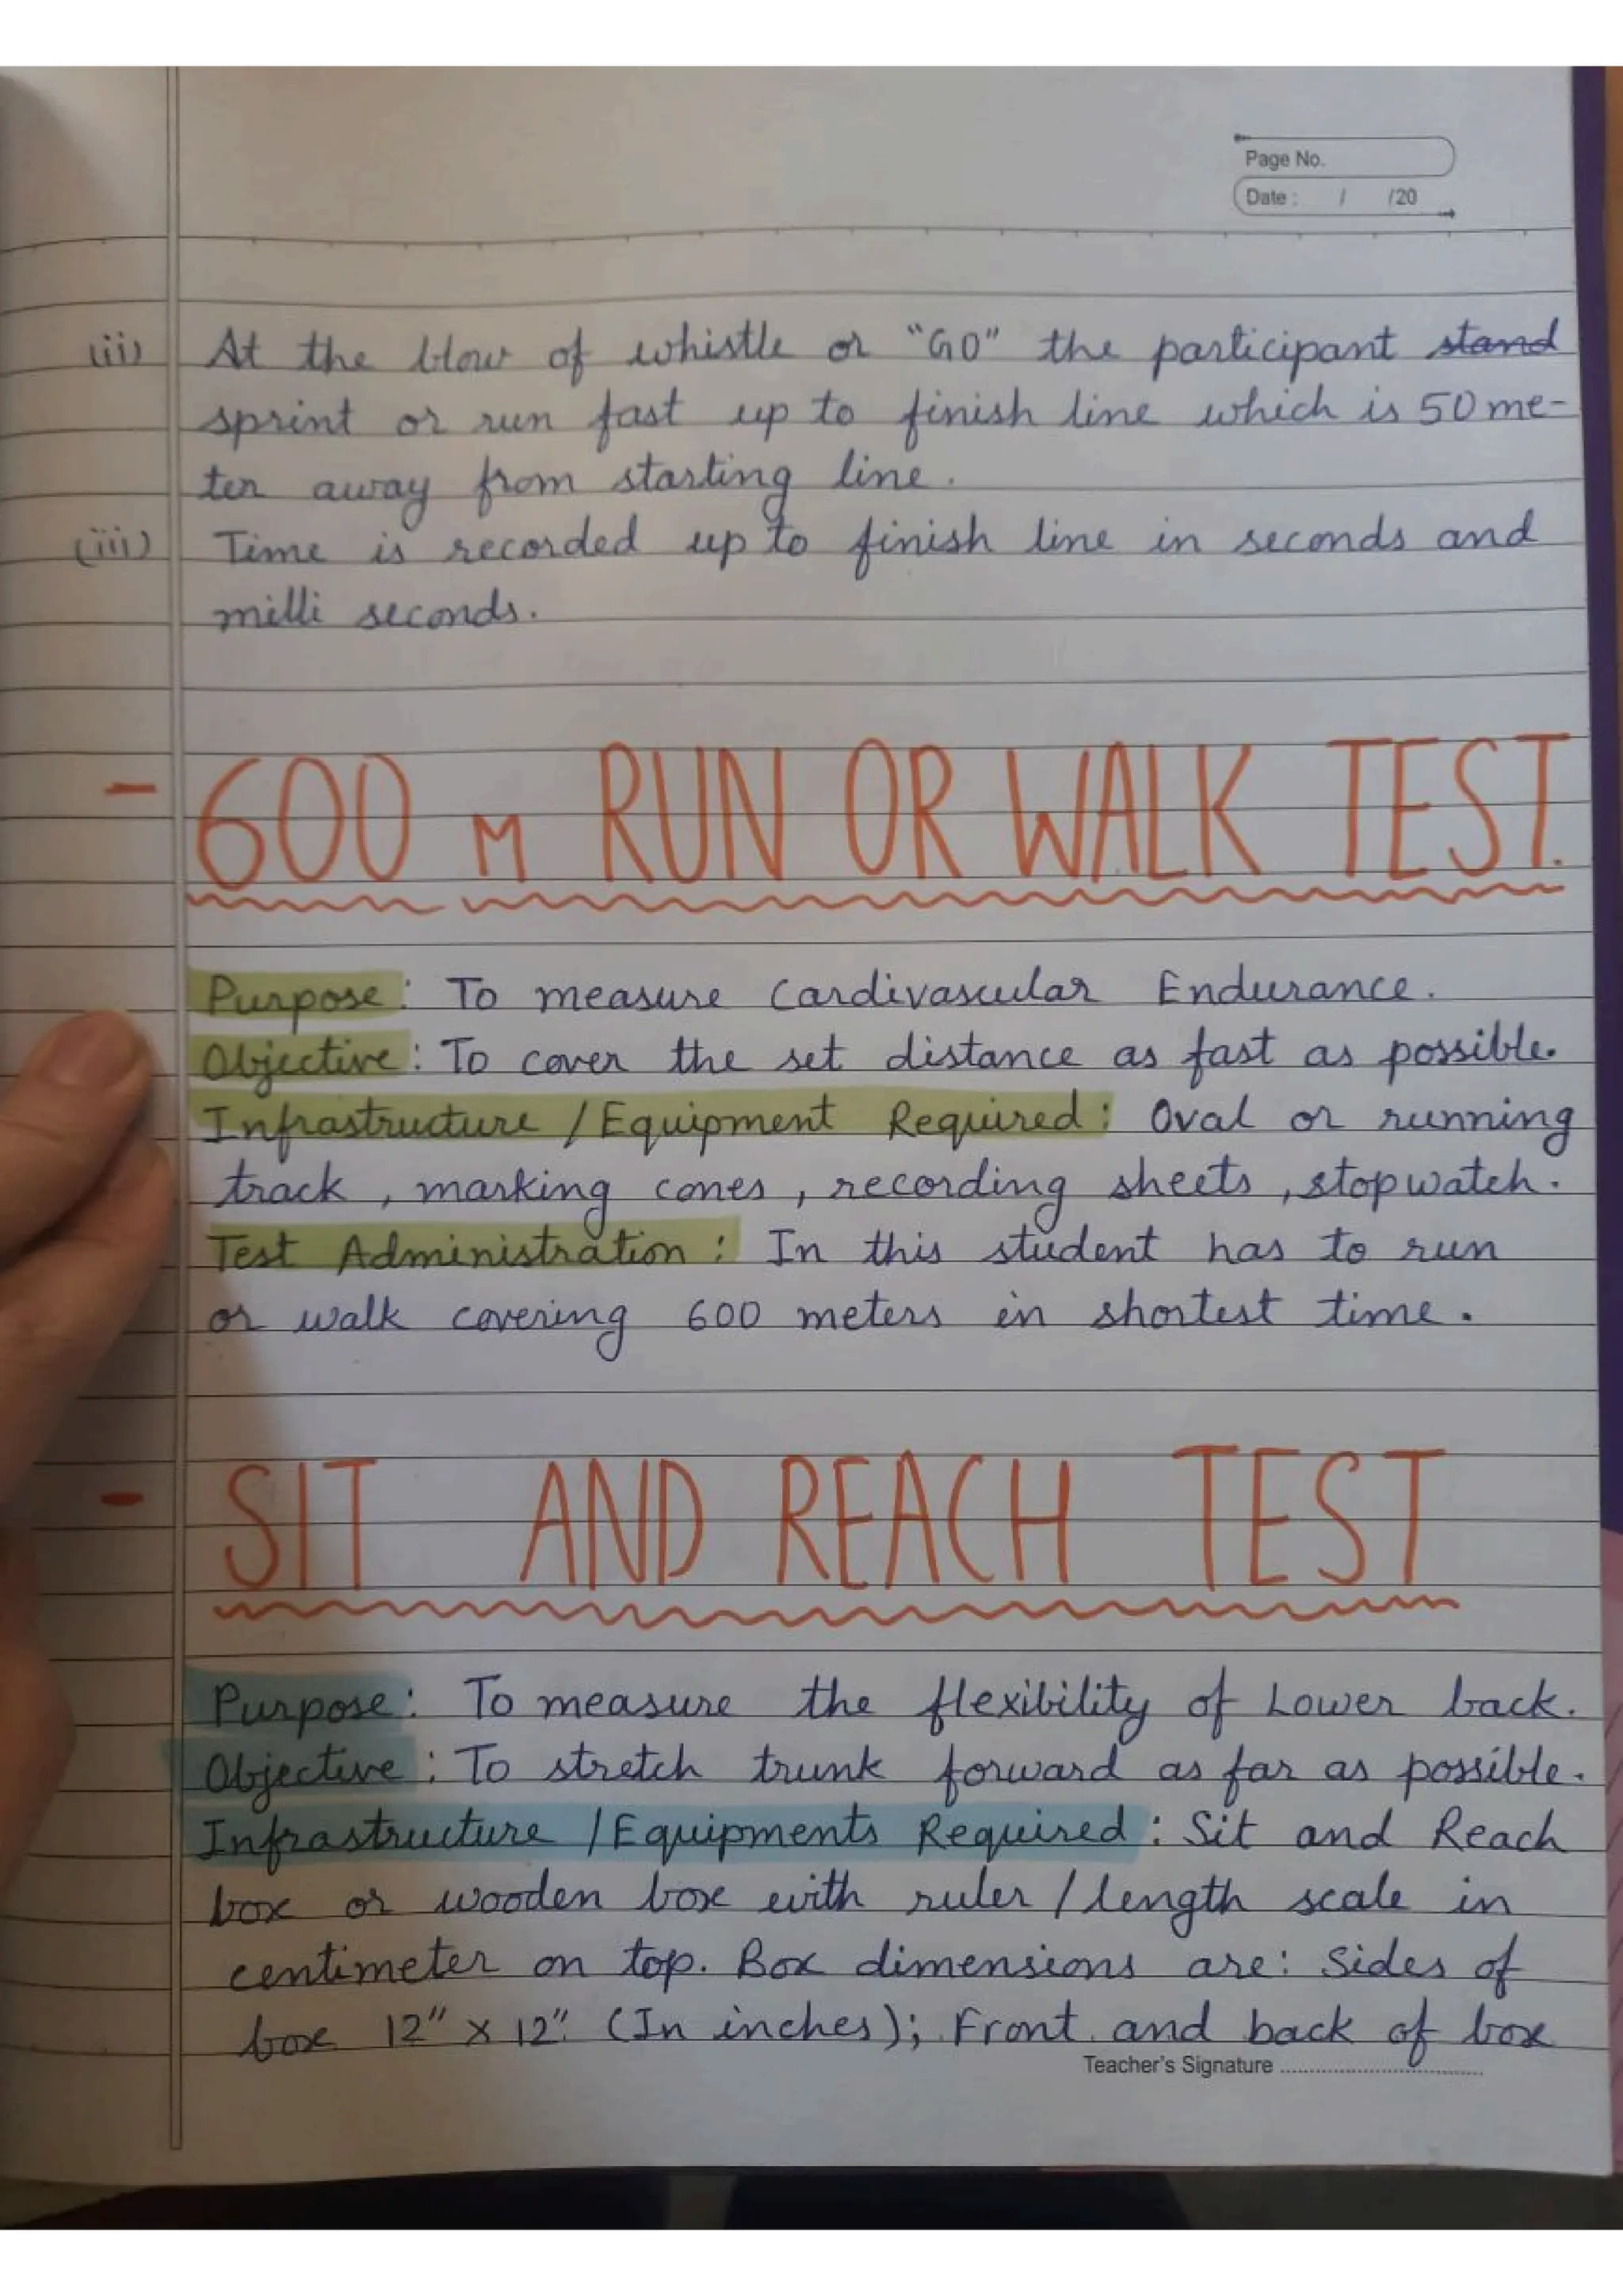 Page No.
Date : / /20
(ii) At the blow of whistle or "GO" the participant stand
sprint or run fast up to finish line which is 50 me-
ter away from starting line.
(iii) Time is recorded up to finish line in seconds and
milli seconds.
- 600 M RUN OR WALK TEST.
Purpose: To measure Cardivascular Endurance.
Objective: To cover the set distance as fast as possible.
Infrastructure / Equipment Required: Oval or running
track, marking cones, recording sheets, stopwatch.
Test Administration: In this student has to run
or walk covering 600 meters in shortest time.
- SIT AND REACH TEST
Purpose: To measure the flexibility of Lower back.
Objective: To stretch trunk forward as far as possible.
Infrastructure / Equipments Required: Sit and Reach
box or wooden box with ruler / length scale in
centimeter on top. Box dimensions are: Sides of
box 12" x 12" (In inches); Front and back of box
Teacher's Signature ..............................